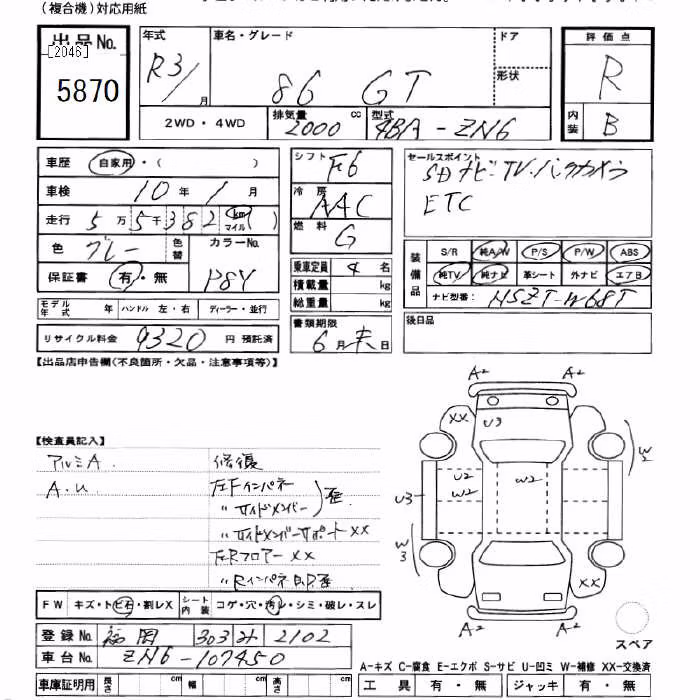 (複合機)対応用紙
出品No.
[2046]
5870
年式
R3/月
車名・グレード
86 GT
ドア
形状
2WD・4WD
排気量
2000 cc
型式
4BA-ZN6
評価点
R
内装
B
車歴 自家用・( )
車検 10年1月
走行 5万5千382 km マイル
色 グレー 色替 カラーNo.
保証書 有・無 P8Y
モデル年式 年 ハンドル 左・右 ディーラー・並行
リサイクル料金 9320 円 預託済
シフト F6
冷房 AAC
燃料 G
乗車定員 4 名
積載量 kg
総重量 kg
書類期限
6月末日
セールスポイント
SDナビTV・バックカメラ
ETC
装備品
S/R 純A/W P/S P/W ABS
純TV 純ナビ 革シート 外ナビ エアB
ナビ型番: HSZT-W68T
後日品
【出品店申告欄(不良箇所・欠品・注意事項等)】
【検査員記入】
アルミA.
A.U
修復
左Fインパネ
〃サイドメンバー
歪
〃サイドメンバーサポートXX
左RフロアーXX
〃Rインパネ
FW キズ・トビ石・割レX シート内装 コゲ・穴・汚レ・シミ・破レ・スレ
登録No. 福岡 303 み 2102
車台No. ZN6-107450
車庫証明用 長さ cm 幅 cm 高さ cm
A2 A2
XX U3
W2
U2
W2 W2
U3
W3
XX
A2 A2
スペア
A-キズ C-腐食 E-エクボ S-サビ U-凹ミ W-補修 XX-交換済
工具 有・無 ジャッキ 有・無